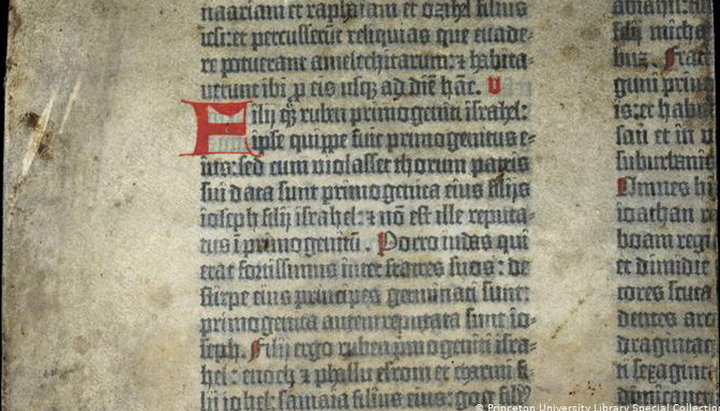 naariam et raphaiam et ozihel filios
iesi: et percusserūt reliquias que euade-
re potuerant amelechitarum: ⁊ habita-
uerunt ibi ꝓ eis usqꝫ ad diē hāc. V
Filij qꝫ ruben primogeniti israhel:
ipse quippe fuit primogenitus e-
ius: sed cum violasset thorum patris
sui data sunt primogenita eius filijs
ioseph filij israhel: ⁊ nō est ille reputa-
tus ī primogenitū. Porro iudas qui
erat fortissimus inter fratres suos: de
stirpe eius principes germinati sunt:
primogenita autem reputata sunt io-
seph. Filij ergo ruben primogeniti isra-
hel: enoch ⁊ phallu esrom et charmi fi-
lij iohel: samaia filius eius: gog filiꝰ
abiahil: fili
filij micha
buz. Frat
guni prin
is: et habi
san et in u
suburbanis
Omnes hi
ioathan r
boam regi
et dimidie
tores scuta
dentes arc
draginta
ti sexagint
dimicantes
© Princeton University Library Special Collectio